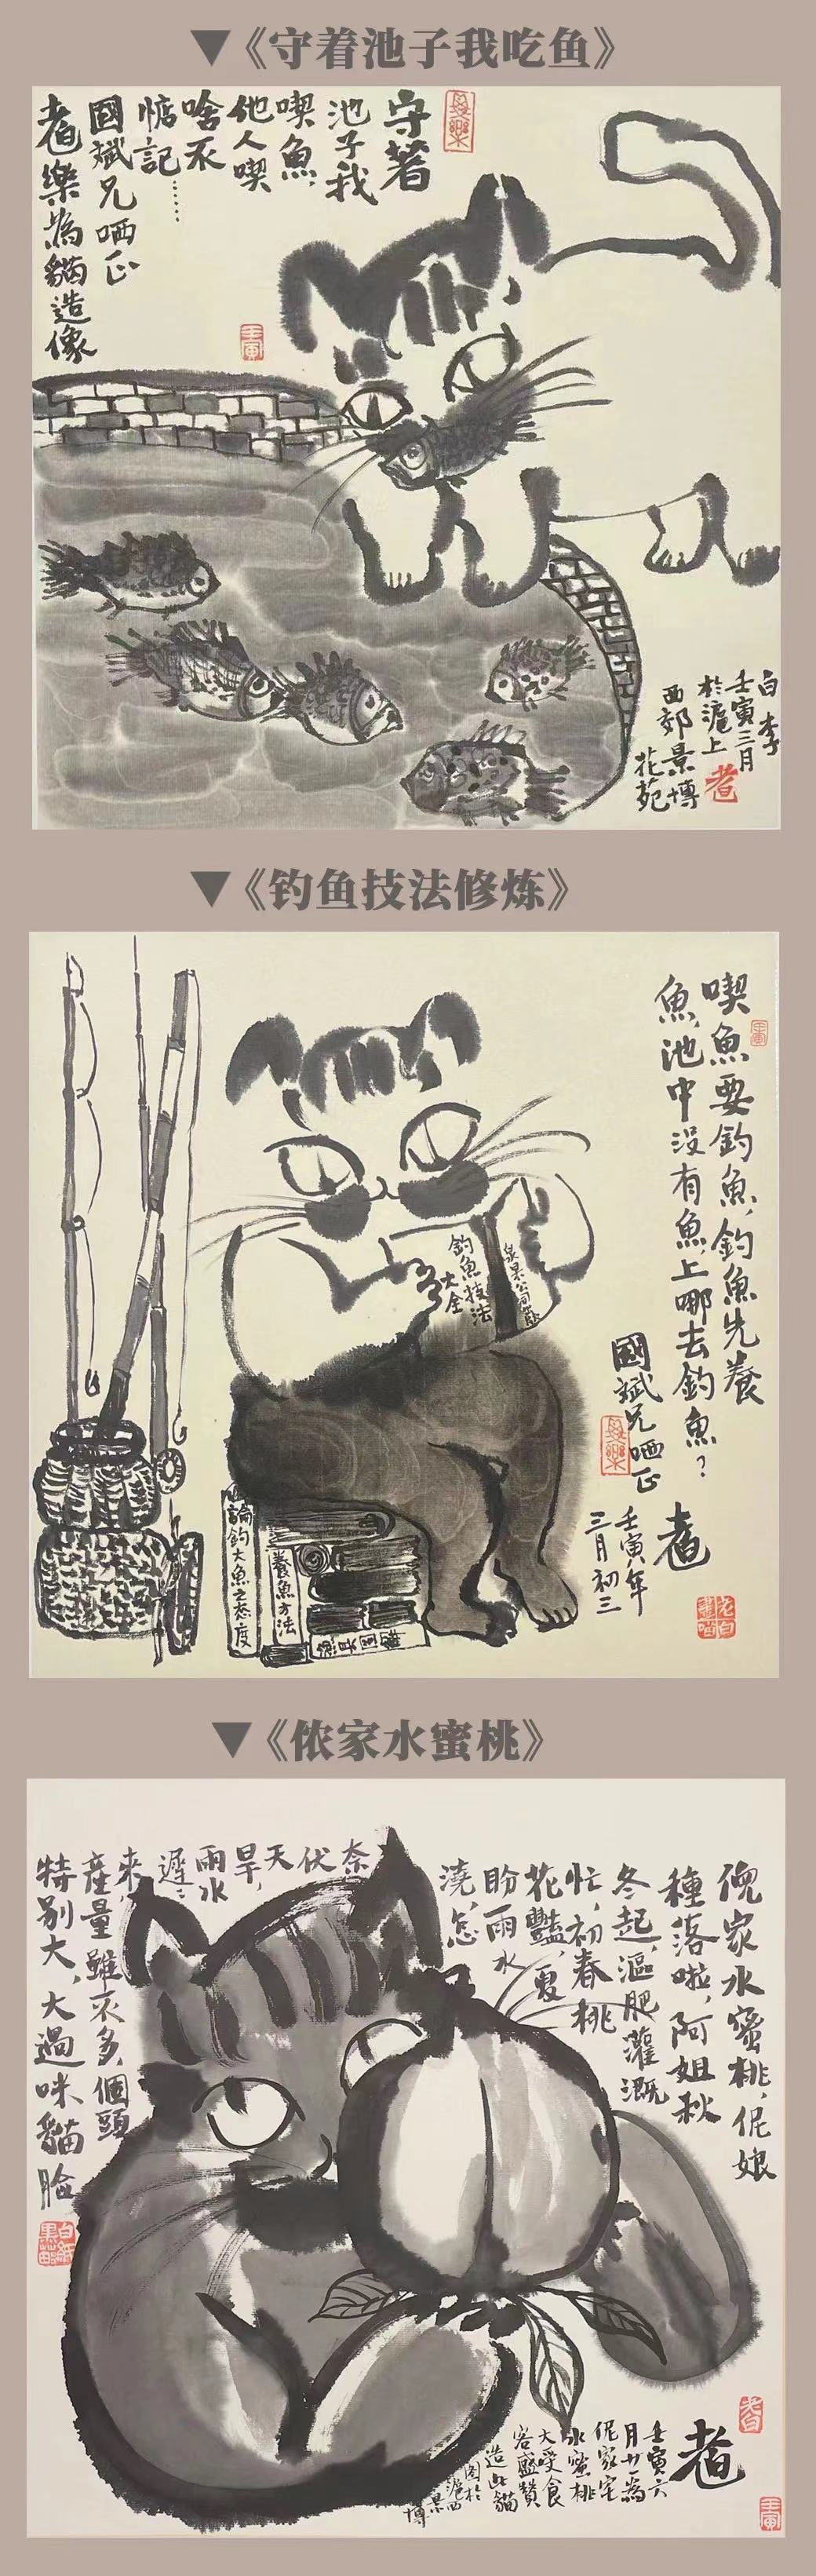 ▼《守着池子我吃鱼》
守著
池子我
喫魚，
他人喫
啥不
惦記……
國斌兄哂正
耉樂為貓造像
壬寅
白李
壬寅三月
於滬上
西郊景博
花苑
▼《钓鱼技法修炼》
喫魚要釣魚，釣魚先養
魚，池中没有魚，上哪去釣魚？
國斌兄哂正
耉
壬寅年
三月初三
壬寅
釣魚技法
大全
論釣大魚之态度
養魚方法
▼《侬家水蜜桃》
俺家水蜜桃，伲娘
種落啦，阿姐秋
冬起，漚肥灌溉
忙，初春桃
花豔，夏
盼雨水
澆，怎
奈
伏
天
旱，
雨水
遲遲
來，
產量雖不多，個頭
特别大，大過咪貓臉
耉
壬寅六
月廿一為
伲家宅
水蜜桃
大受食
客盛贊
造此貓
圖於
滬西
景
博
壬寅